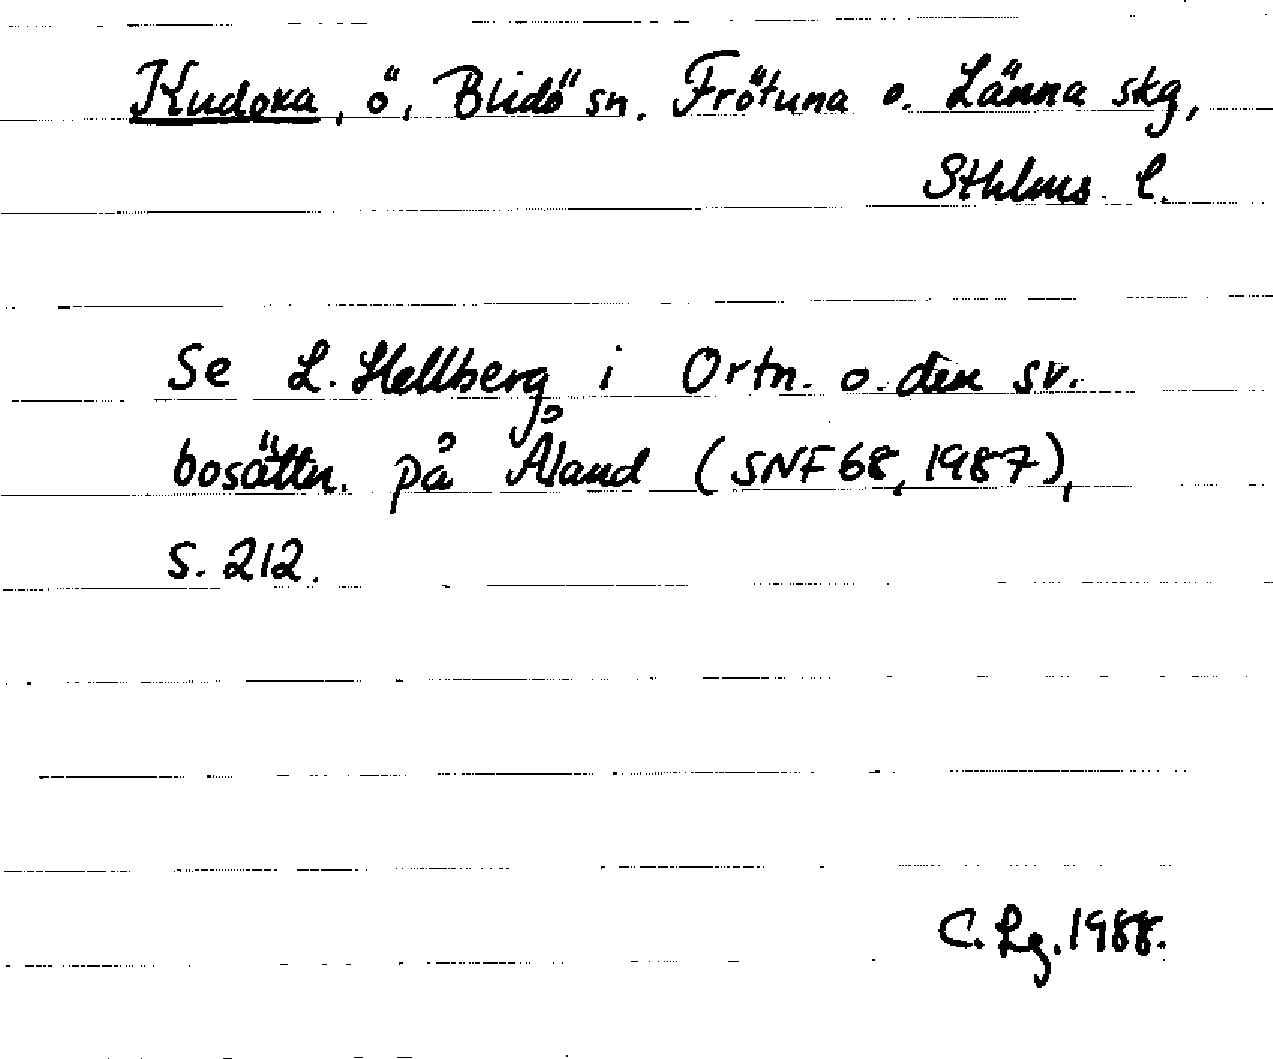 Kudoxa, ö, Blidö sn. Frötuna o. Länna skg,
Sthlms l.
Se L. Hellberg i Ortn. o. den sv.
bosättn. på Åland (SNF 68, 1987),
s. 212.
C. Lg. 1988.